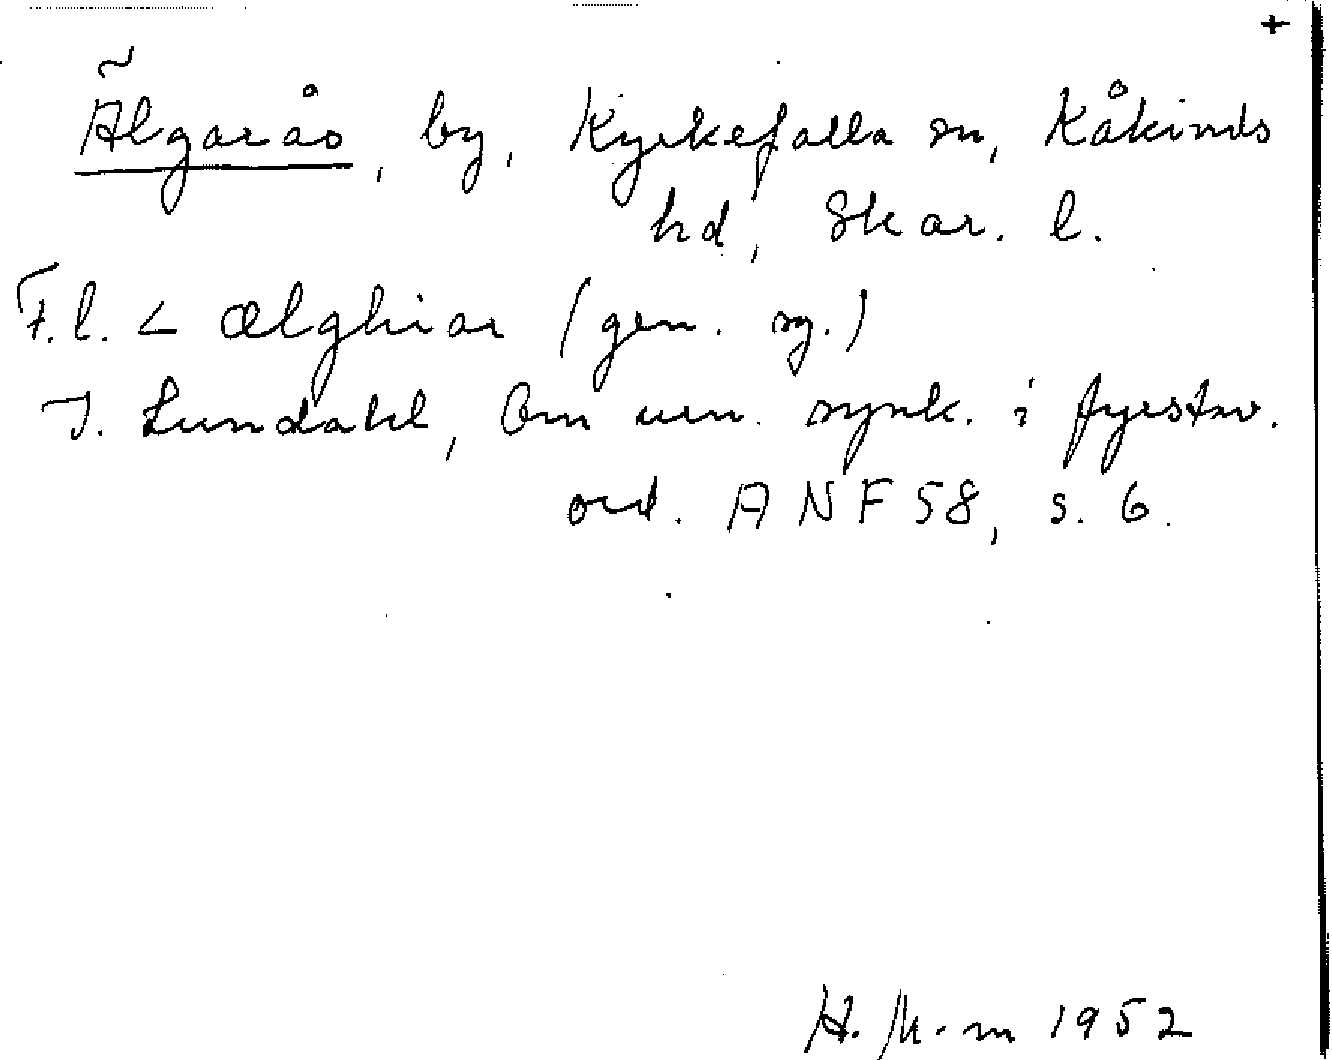 +
Älgarås, by, Kyrkefalla sn, Kåkinds
hd, Skar. l.
F.l. < ælghiar (gen. sg.)
I. Lundahl, Om urn. synk. i fyrstav.
ord. ANF 58, s. 6.
H. M-m 1952